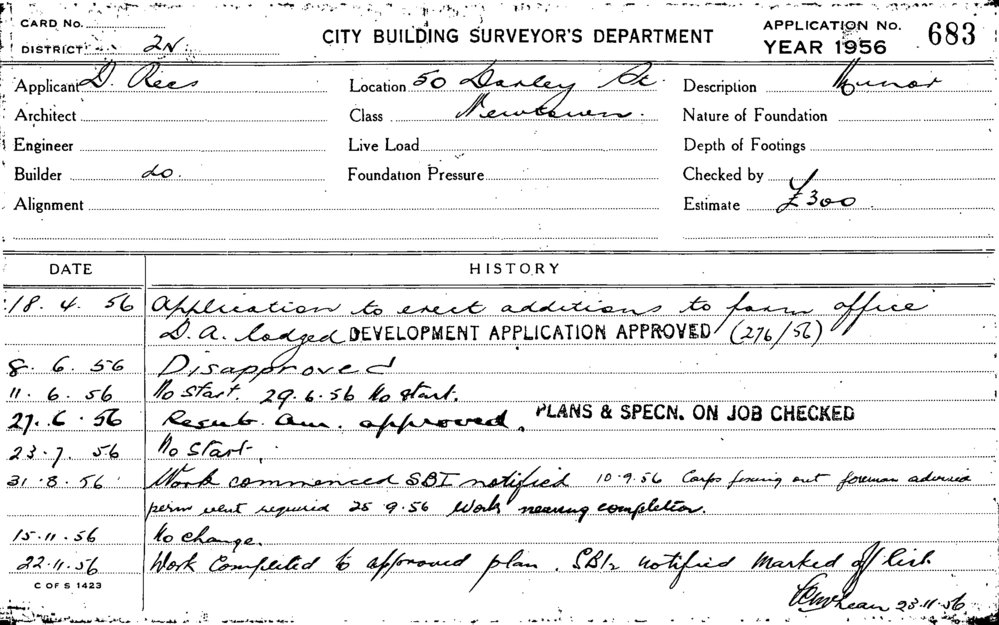 CARD No.
DISTRICT 2N.
CITY BUILDING SURVEYOR'S DEPARTMENT
APPLICATION No. 683
YEAR 1956
Applicant D. Rees Location 50 Darley St. Description Minor
Architect Class Newtown. Nature of Foundation
Engineer Live Load Depth of Footings
Builder do. Foundation Pressure Checked by
Alignment Estimate £300
DATE HISTORY
18. 4. 56 Application to erect additions to form office
D. A. lodged DEVELOPMENT APPLICATION APPROVED (276/56)
8. 6. 56 Disapproved
11. 6. 56 No start. 29.6.56 No start.
27. 6. 56 Resub. Am. approved. PLANS & SPECN. ON JOB CHECKED
23.7. 56 No start.
31.8.56 Work commenced SBI notified 10.9.56 Carps fixing out foreman advised
perm vent required 25 9.56 Work nearing completion.
15.11.56 No change.
22.11.56 Work Completed to approved plan. SBI notified Marked off list.
C OF S 1423
23.11.56